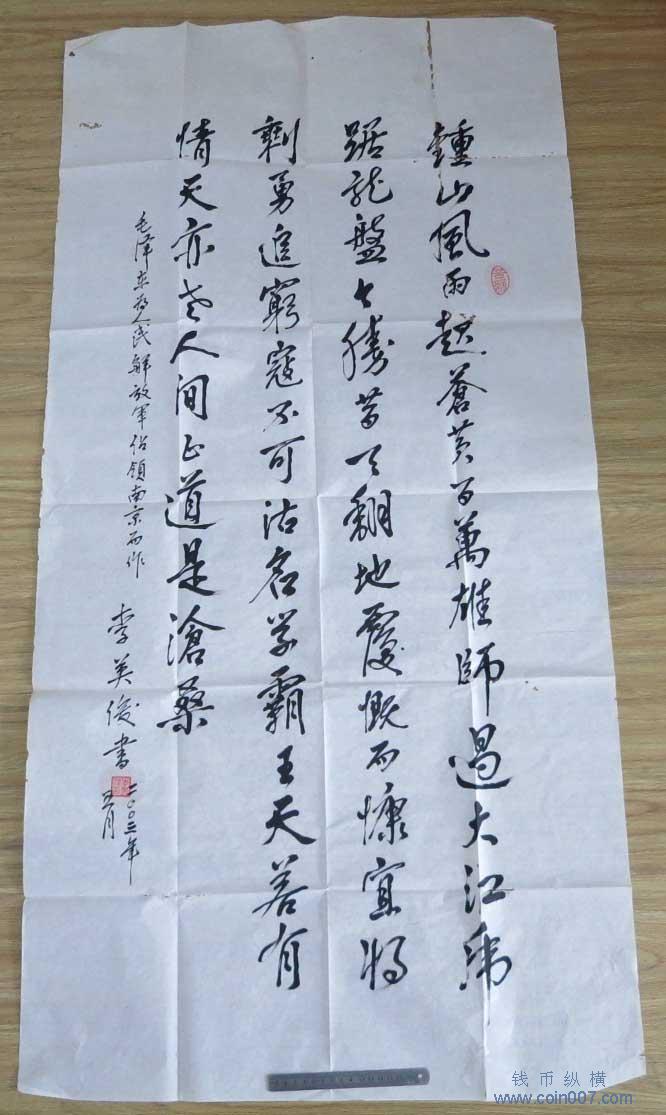 鍾山風雨起蒼黄百萬雄師過大江虎
踞龙盤今勝昔天翻地覆慨而慷宜将
剩勇追窮寇不可沽名学霸王天若有
情天亦老人间正道是滄桑
毛泽东为人民解放军佔领南京而作 李英俊書
二〇〇三年
五月
钱币纵横
www.coin007.com